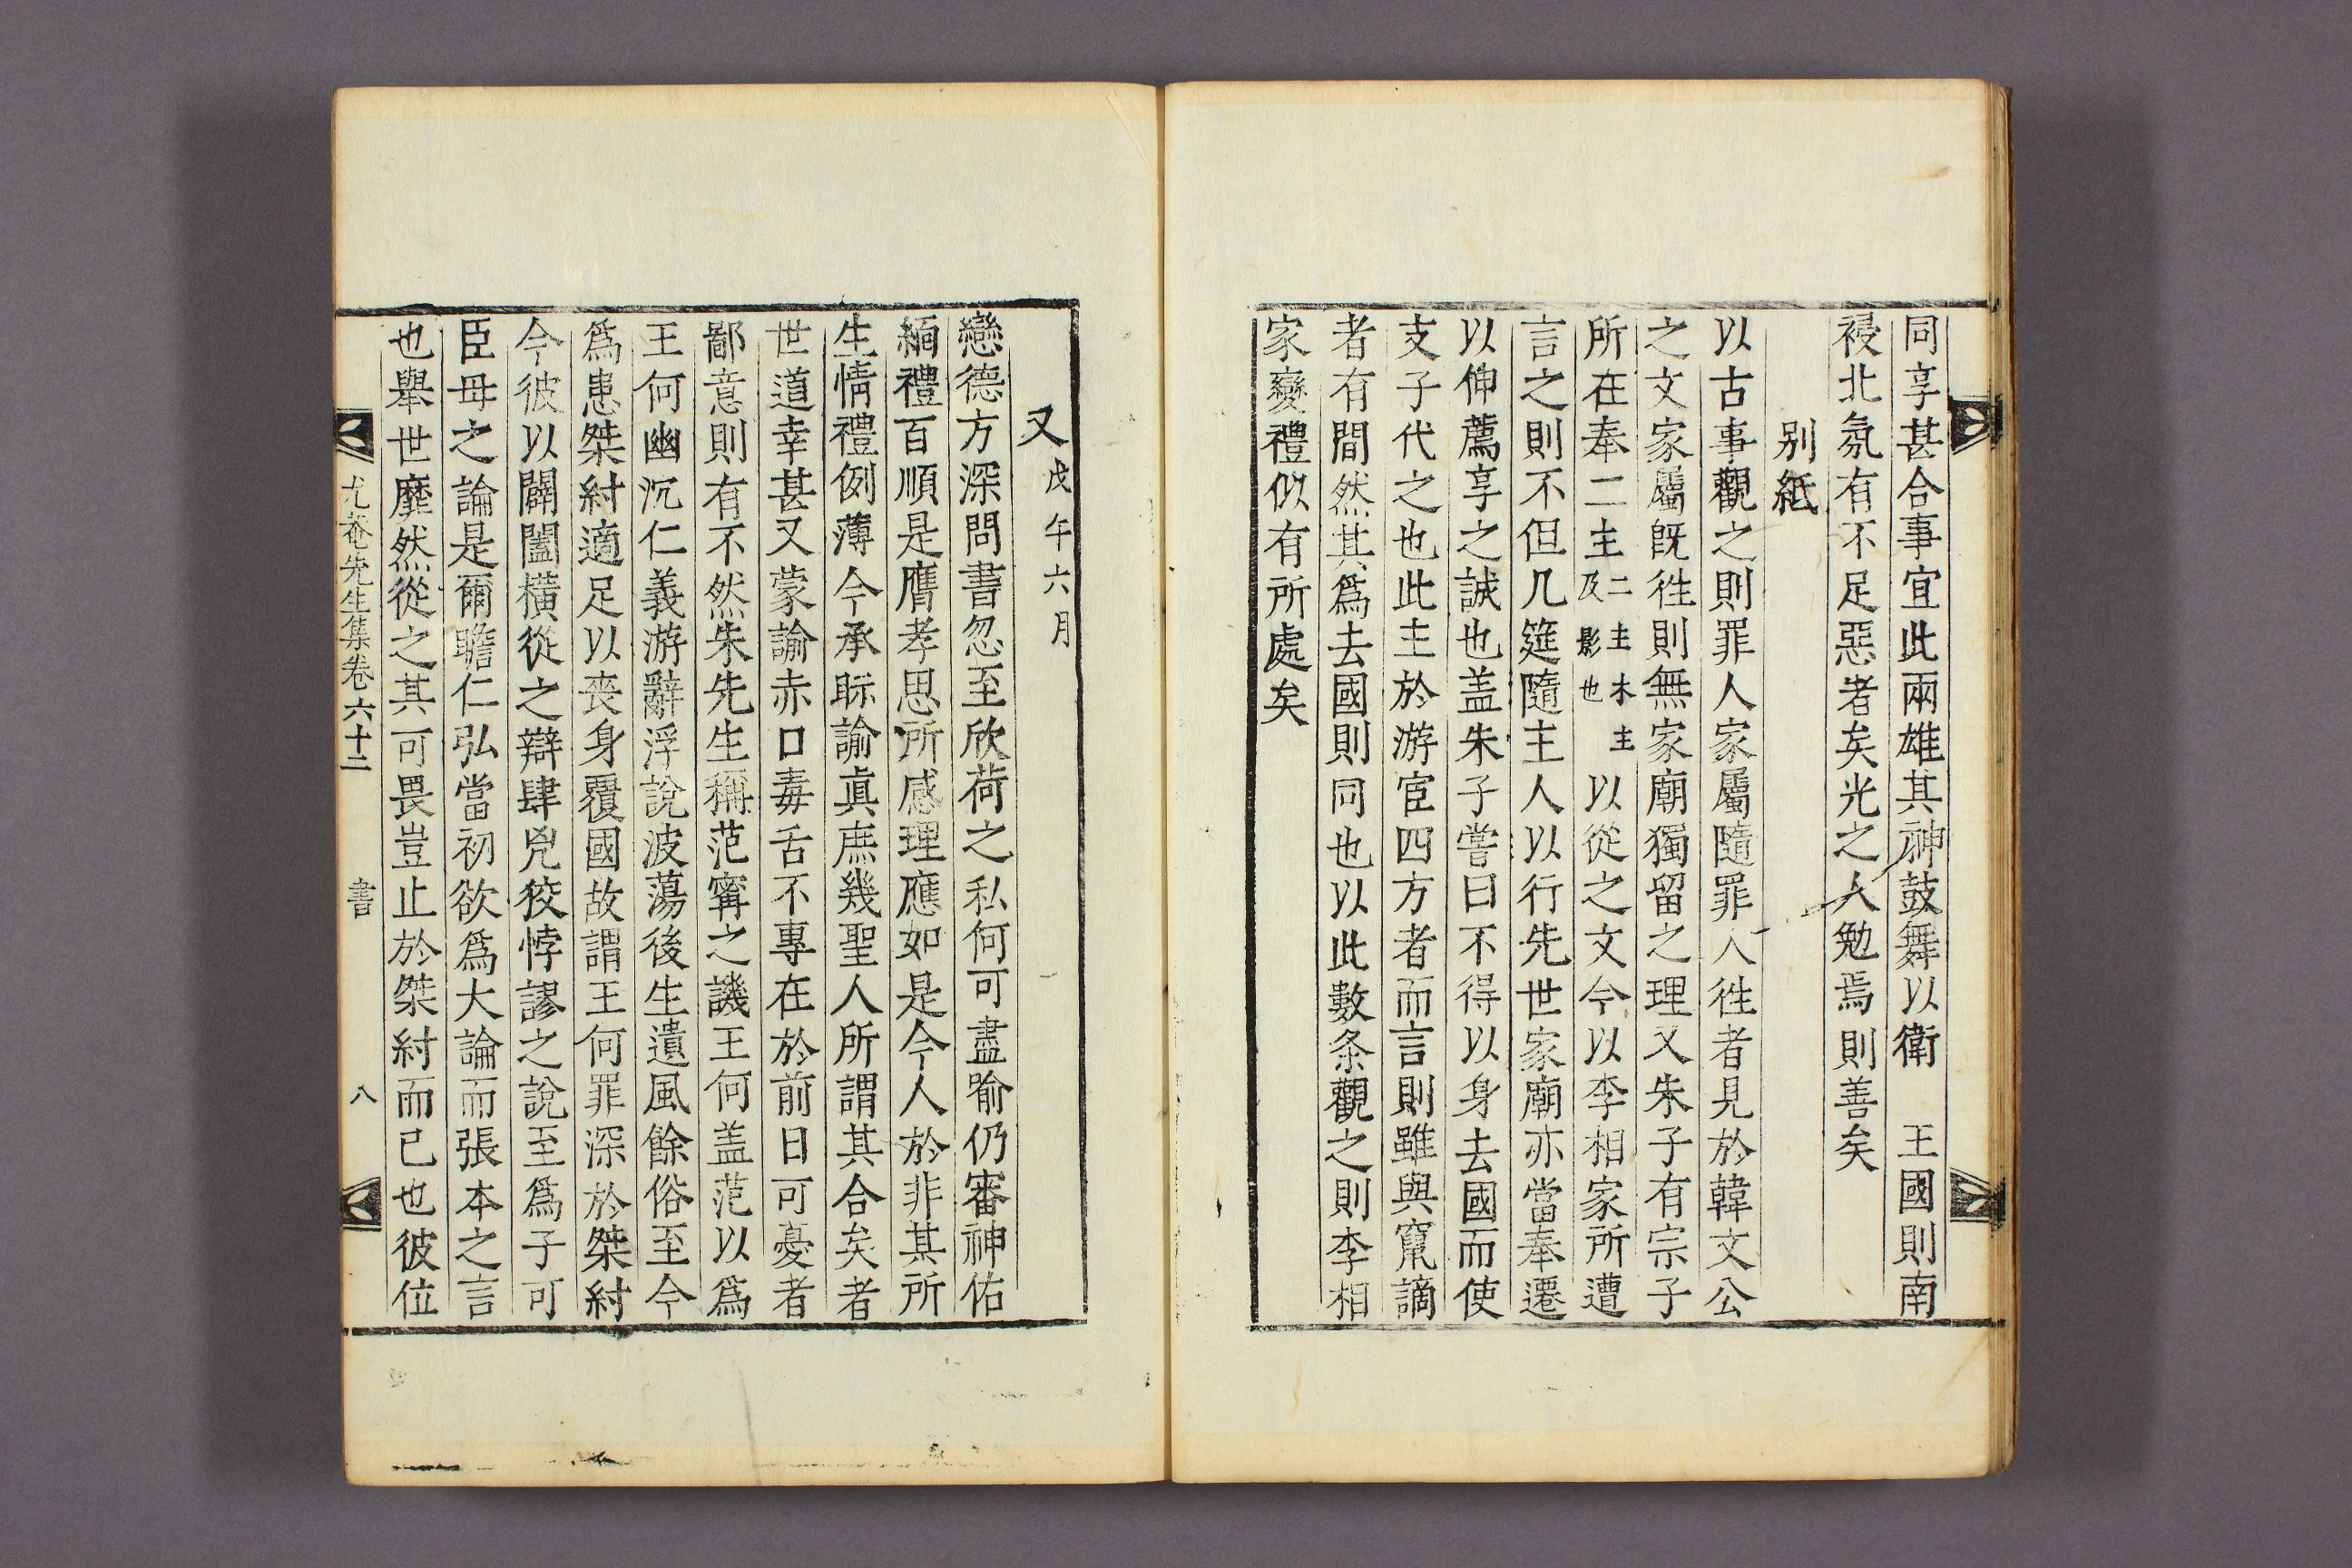 同享甚合事宜此兩雄其神鼓舞以衛　王國則南
祲北氛有不足惡者矣光之人勉焉則善矣
别紙
以古事觀之則罪人家屬隨罪人徃者見於韓文公
之文家屬旣徃則無家廟獨留之理又朱子有宗子
所在奉二主二主木主及影也以從之文今以李相家所遭
言之則不但几筵隨主人以行先世家廟亦當奉遷
以伸薦享之誠也盖朱子嘗曰不得以身去國而使
支子代之也此主於游宦四方者而言則雖與竄謫
者有間然其爲去國則同也以此數条觀之則李相
家變禮似有所處矣
又戊午六月
戀德方深問書忽至欣荷之私何可盡喩仍審神佑
緬禮百順是膺孝思所感理應如是今人於非其所
生情禮例薄今承眎諭眞庶幾聖人所謂其合矣者
世道幸甚又蒙諭赤口毒舌不專在於前日可憂者
鄙意則有不然朱先生稱范寗之譏王何盖范以爲
王何幽沉仁義游辭浮說波蕩後生遺風餘俗至今
爲患桀紂適足以喪身覆國故謂王何罪深於桀紂
今彼以闢闔橫從之辯肆兇狡悖謬之說至爲子可
臣母之論是爾瞻仁弘當初欲爲大論而張本之言
也舉世靡然從之其可畏豈止於桀紂而已也彼位
尤菴先生集卷六十二　書　八